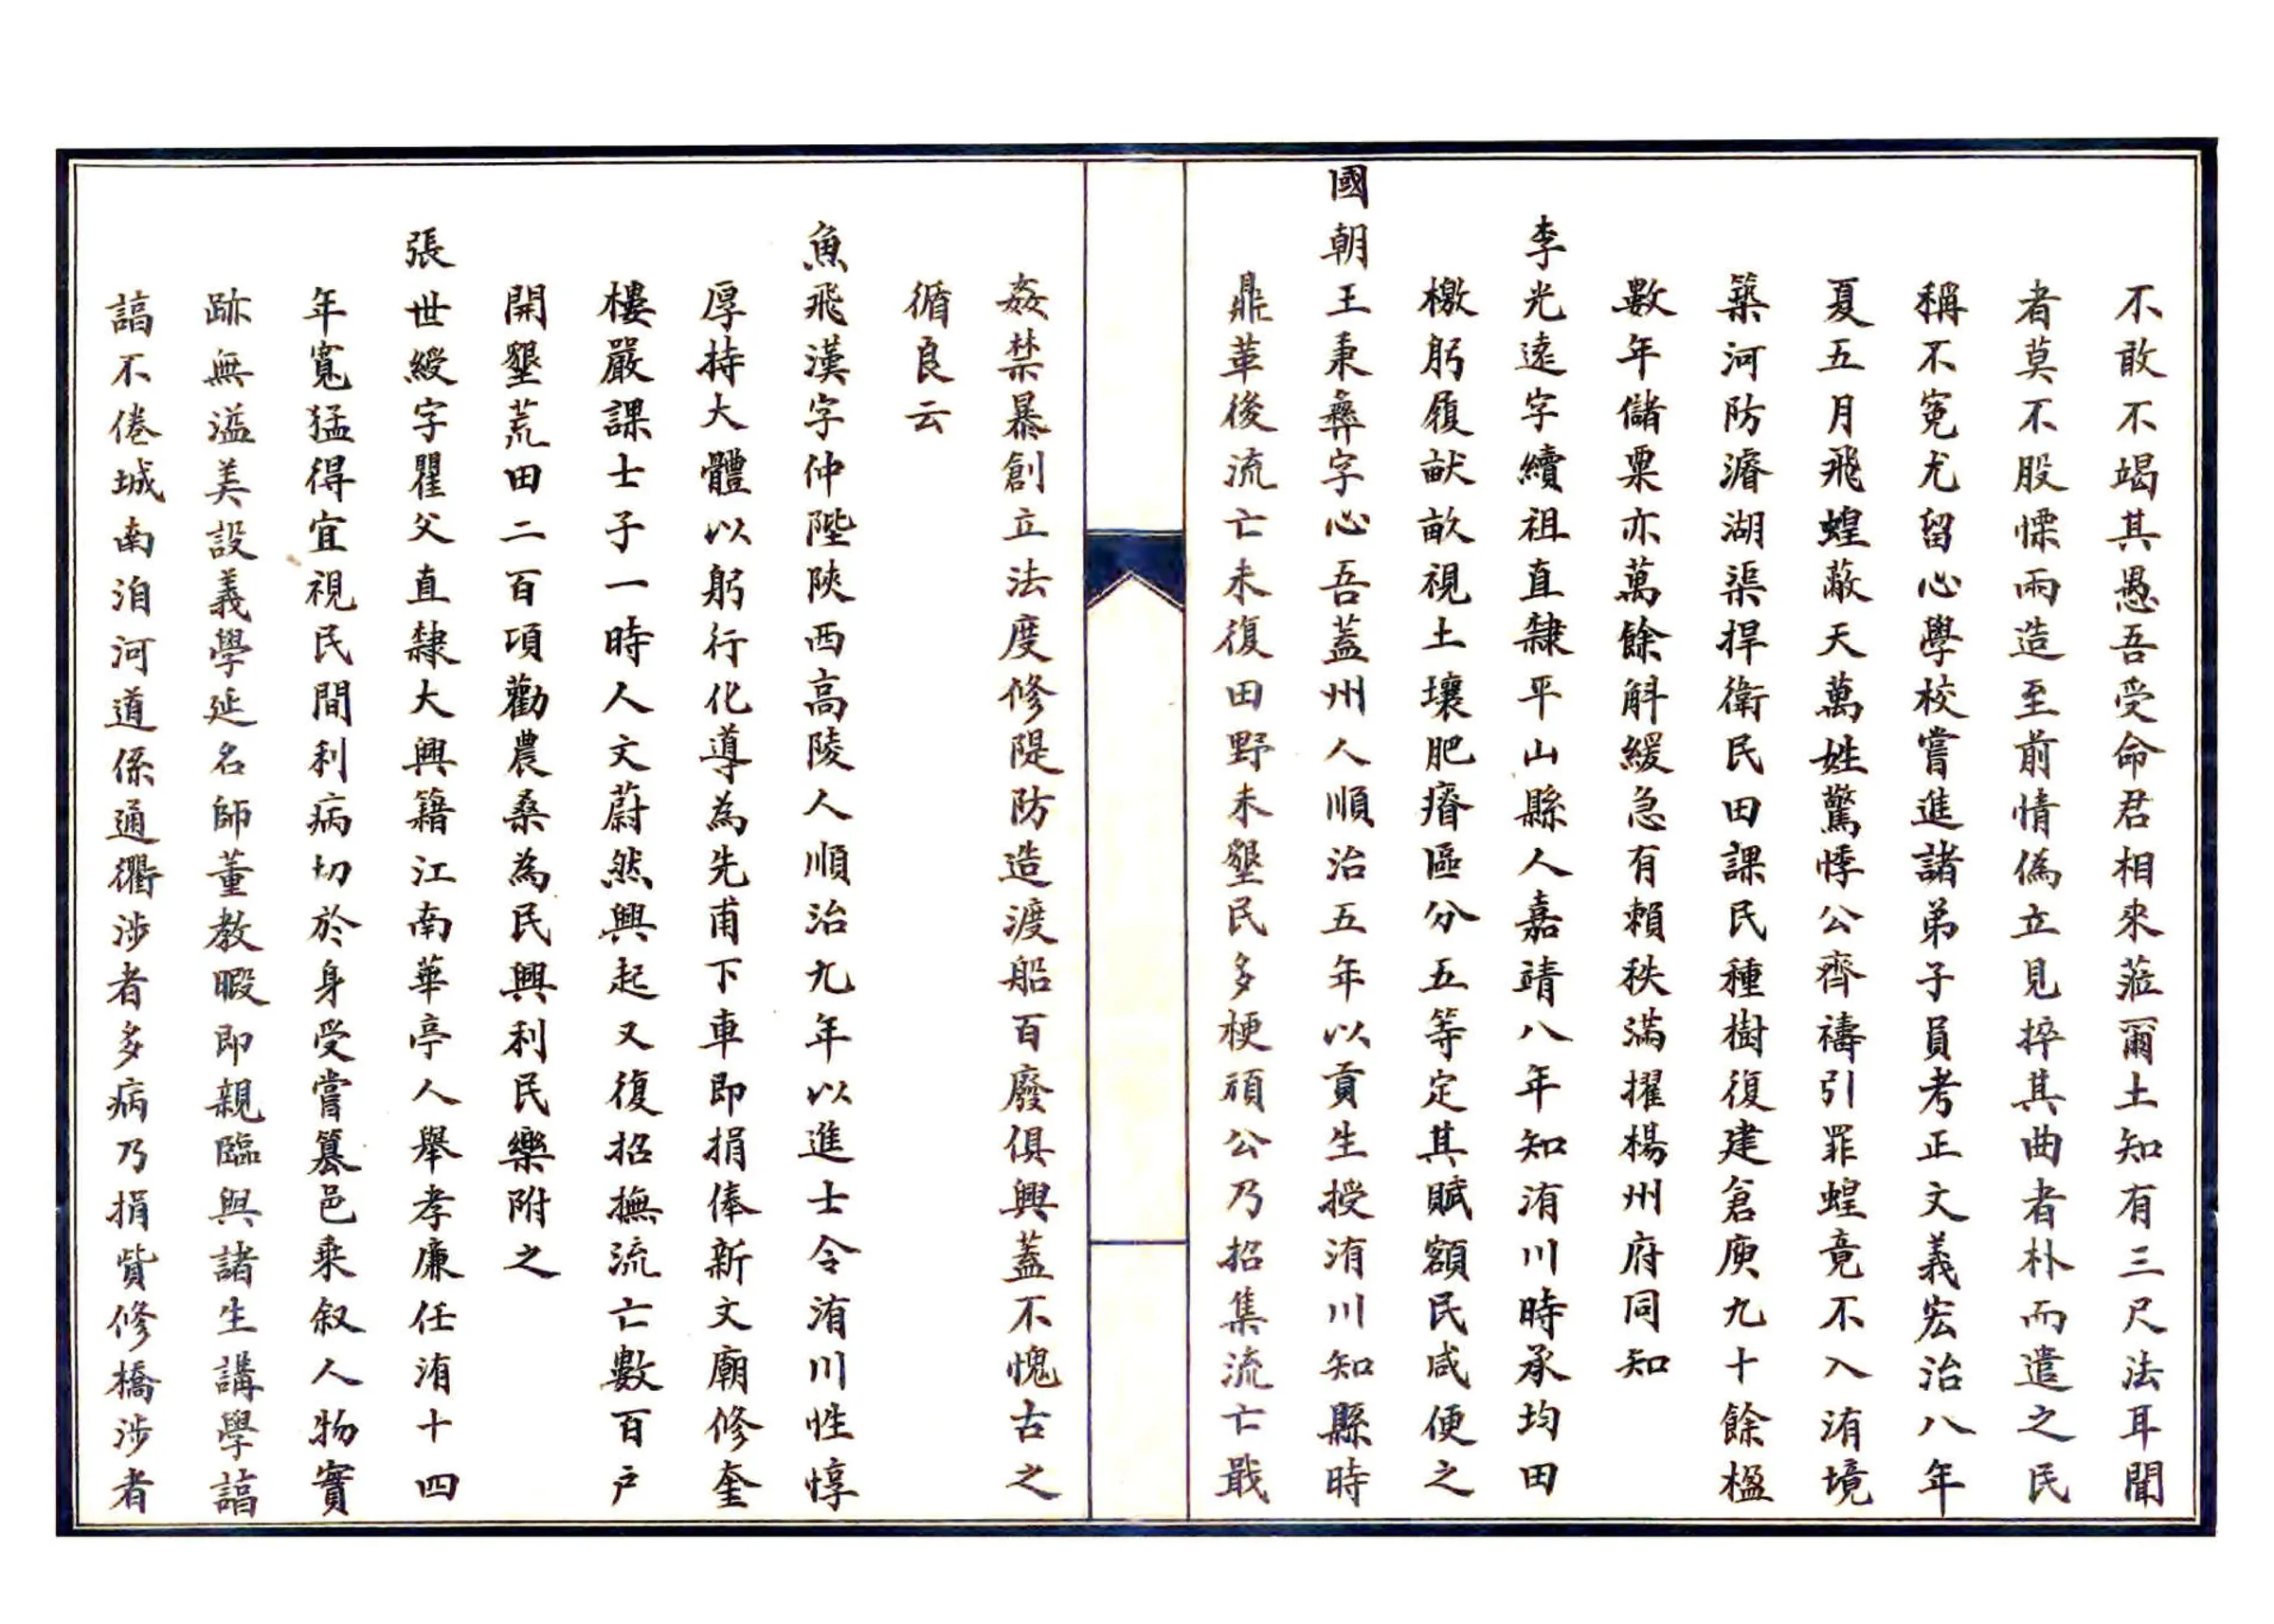 不敢不竭其愚吾受命君相來蒞爾土知有三尺法耳聞
者莫不股慄兩造至前情偽立見捽其曲者朴而遣之民
稱不冤尤留心學校嘗進諸弟子員考正文義宏治八年
夏五月飛蝗蔽天萬姓驚悸公齊禱引罪蝗竟不入洧境
築河防濬湖渠捍衛民田課民種樹復建倉庾九十餘楹
數年儲粟亦萬餘斛緩急有賴秩滿擢楊州府同知
李光遠字續祖直隸平山縣人嘉靖八年知洧川時承均田
檄躬履畎畝視土壤肥瘠區分五等定其賦額民咸便之
國朝王秉彝字心吾蓋州人順治五年以貢生授洧川知縣時
鼎革後流亡未復田野未墾民多梗頑公乃招集流亡戢
姦禁暴創立法度修隄防造渡船百廢俱興蓋不愧古之
循良云
魚飛漢字仲陛陝西高陵人順治九年以進士令洧川性惇
厚持大體以躬行化導為先甫下車即捐俸新文廟修奎
樓嚴課士子一時人文蔚然興起又復招撫流亡數百戶
開墾荒田二百項勸農桑為民興利民樂附之
張世綬字瞿父直隸大興籍江南華亭人舉孝廉任洧十四
年寬猛得宜視民間利病切於身受嘗纂邑乘叙人物實
跡無溢美設義學延名師董教暇即親臨與諸生講學諄
諄不倦城南洎河道係通衢涉者多病乃捐貲修橋涉者